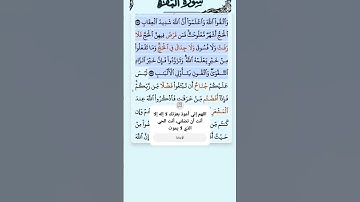 سورة البقرة
وَٱتَّقُوا۟ ٱللَّهَ وَٱعْلَمُوٓا۟ أَنَّ ٱللَّهَ شَدِيدُ ٱلْعِقَابِ
ٱلْحَجُّ أَشْهُرٌ مَّعْلُومَٰتٌ فَمَن فَرَضَ فِيهِنَّ ٱلْحَجَّ فَلَا
رَفَثَ وَلَا فُسُوقَ وَلَا جِدَالَ فِى ٱلْحَجِّ وَمَا تَفْعَلُوا۟
مِنْ خَيْرٍ يَعْلَمْهُ ٱللَّهُ وَتَزَوَّدُوا۟ فَإِنَّ خَيْرَ ٱلزَّادِ
ٱلتَّقْوَىٰ وَٱتَّقُونِ يَٰٓأُو۟لِى ٱلْأَلْبَٰبِ لَيْسَ
عَلَيْكُمْ جُنَاحٌ أَن تَبْتَغُوا۟ فَضْلًا مِّن رَّبِّكُمْ
فَإِذَآ أَفَضْتُم مِّنْ عَرَفَٰتٍ فَٱذْكُرُوا۟ ٱللَّهَ عِندَ
اللهم إني أعوذ بعزتك لا إله إلا
أنت أن تضلني، أنت الحي
الذي لا يموت